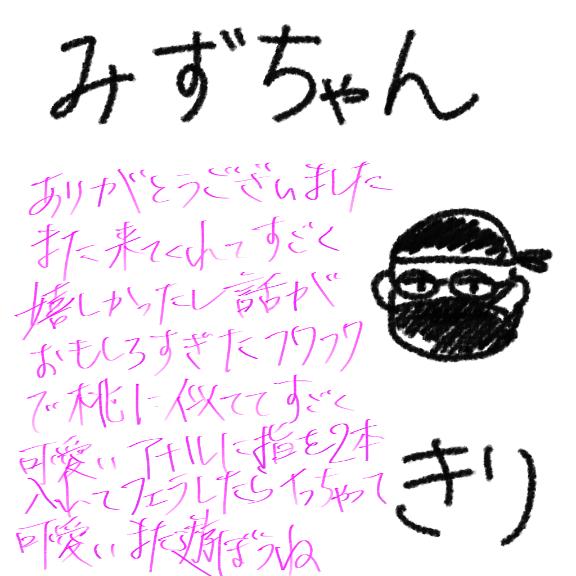 みずちゃん
ありがとうございました
また来てくれてすごく
嬉しかったし話が
おもしろすぎたフワフワ
で桃に似ててすごく
可愛いアナルに指を2本
入れてフェラしたらイっちゃって
可愛いまた遊ぼうね
きり